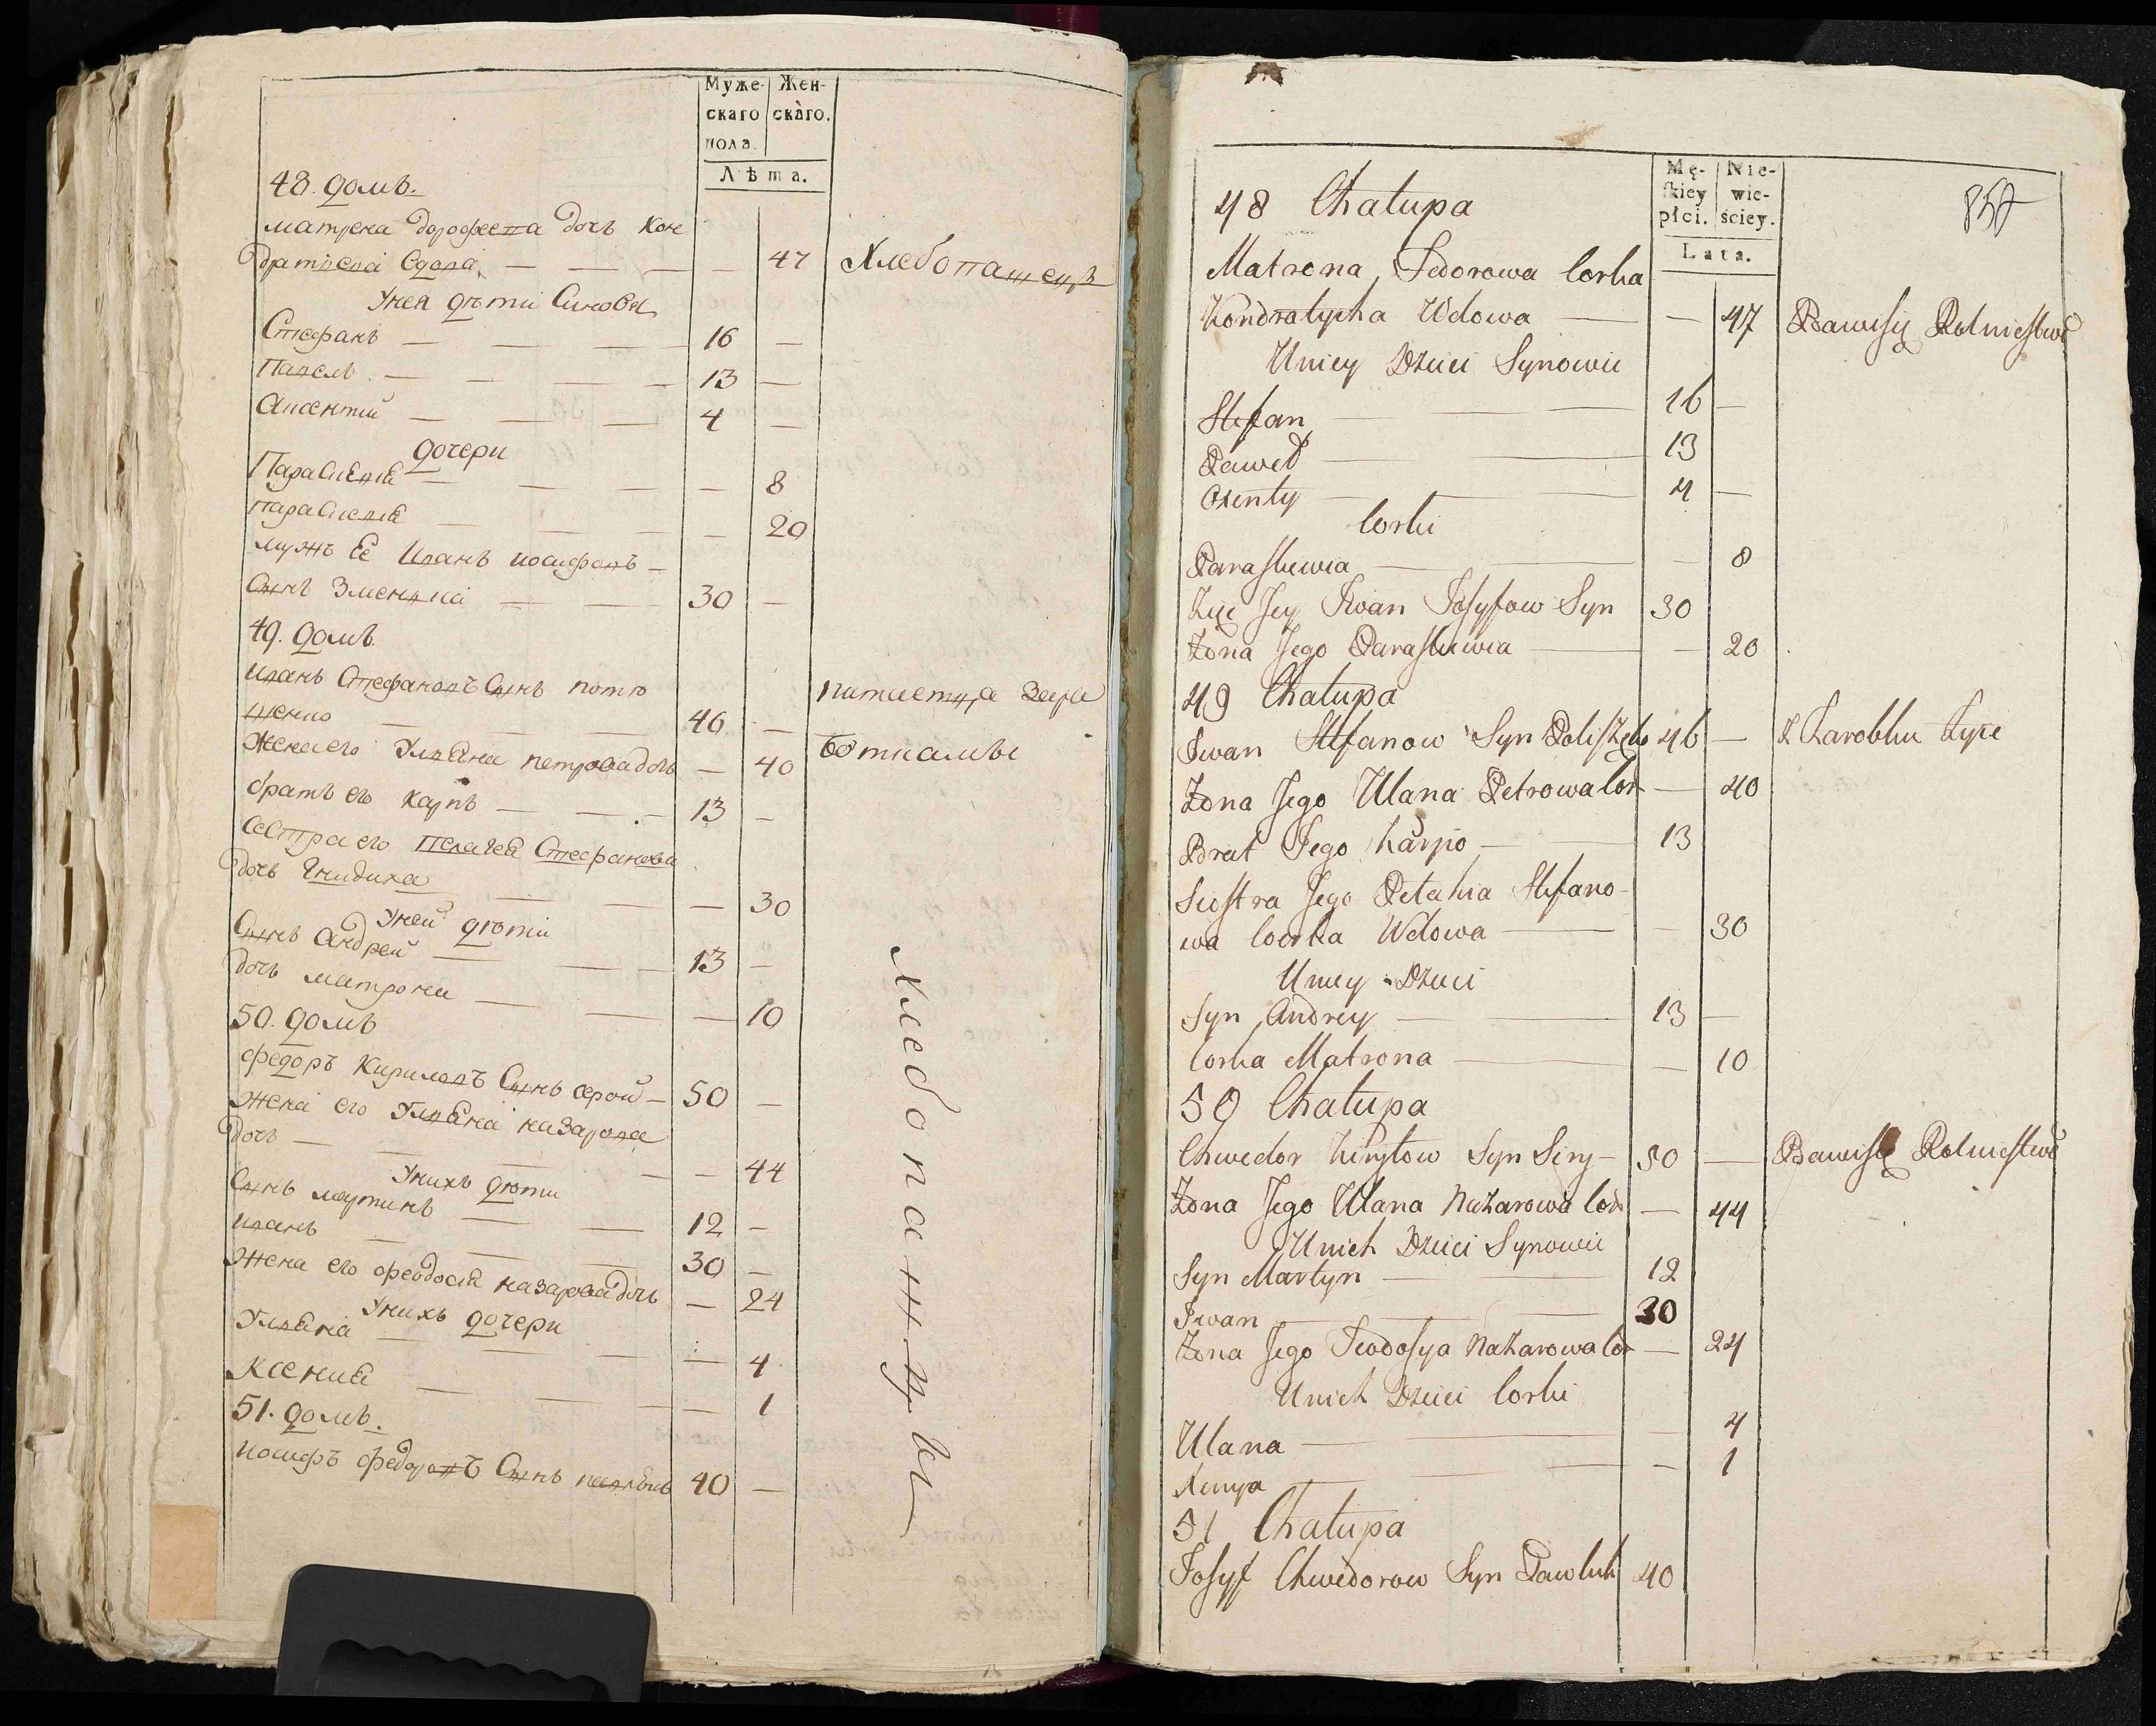 Муже-
скаго
пола.
Жен-
скаго.
Лѣта.
48. домъ.
матрена дорофеева дочь Кон
дратиева вдова — — — — 47 Хлебопашецъ
у нея дѣти Синовя
Стефанъ — — — 16 —
Павелъ — — — — 13 —
Авкентий — — — 4 —
дочери
Параскевія — — — — 8
параскевія — — — — 20
мужъ Ее Иванъ иосифовъ —
Сынъ — — 30 —
49. домъ.
Иванъ Стефановъ Сынъ
— — — 46 —
Жена его Ульяна петрова дочь — 40
братъ его карпъ — — — 13 —
Сестра его Пелагея Стефанова
дочь — — — 30
у ней дѣти
Сынъ андрей — — — 13 —
дочь матрона — — — 10
50. домъ
федоръ Кириловъ Сынъ серой — 50 —
Жена его Ульяна назарова
дочь — — — — — 44
у нихъ дѣти
Сынъ мартинъ — — 12 —
иванъ — — — 30 —
Жена его феодосія назарова дочь — 24
у нихъ дочери
Ульяна — — — — 4
Ксения — — — — 1
51. домъ.
иосифъ федоровъ Сынъ 40 —
хлебопашцы
Mę-
skiey
płci.
Nie-
wie-
ściey.
Lata.
857
48 Chałupa
Matrona Fedorowa Corka
Kondratycha Wdowa — — 47 Bawisię Rolnictwē
Uniey Dzieci Synowie
Stefan — — 16 —
Paweł — 13
Oxenty — — 4 —
Corki
Paraskewia — — — 8
Zięć Jey Iwan Josyfow Syn 30
Żona Jego Paraskiewia — — 20
49 Chałupa
Iwan Stefanow Syn Poliszczuk 46 — Z Zarobku Żyie
Żona Jego Ulana Petrowa Cor — 40
Brat Jego Karpo — — 13
Siostra Jego Pelahia Stefano-
wa Coorka Wdowa — — 30
Uniey Dzieci
Syn Andrey — — 13 —
Corka Matrona — — 10
50 Chałupa
Chwedor Kiryłow Syn Siry — 50 — Bawisię Rolnictwē
Żona Jego Ulana Nazarowa Cor — 44
Unich Dzieci Synowie
Syn Martyn — — 12
Iwan — — 30
Żona Jego Teodosya Nazarowa Cor — 24
Unich Dzieci Corki
Ulana — — — 4
Xenya — — 1
51 Chałupa
Josyf Chwedorow Syn Pawluk 40